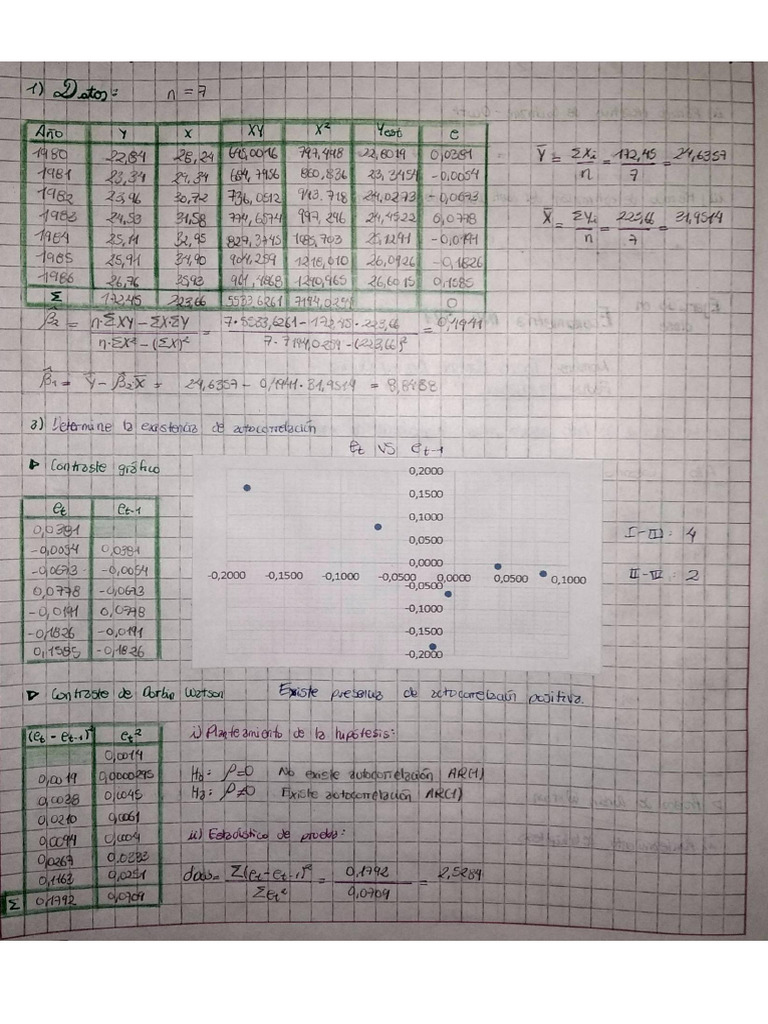 1) Datos: n = 7
Año Y X XY X² Yest e
1980 22,84 28,24 645,0016 797,498 22,8019 0,0381
1981 23,34 29,34 684,7956 860,836 23,3454 -0,0054
1982 23,96 30,72 736,0512 943,718 24,0273 -0,0673
1983 24,53 31,58 774,6574 997,296 24,4522 0,0778
1984 25,11 32,95 827,3745 1085,703 25,1291 -0,0191
1985 25,91 34,90 904,259 1218,010 26,0926 -0,1826
1986 26,76 35,93 961,4868 1290,965 26,6015 0,1585
Σ 172,45 223,66 5533,6261 7194,0254 0
Y̅ = ΣXi/n = 172,45/7 = 24,6357
X̅ = ΣYi/n = 223,66/7 = 31,9514
β̂2 = (n·ΣXY − ΣX·ΣY)/(n·ΣX² − (ΣX)²) = (7·5533,6261 − 172,45·223,66)/(7·7194,0254 − (223,66)²) = 0,4941
β̂1 = Y̅ − β̂2X̅ = 24,6357 − 0,4941·31,9514 = 8,8488
a) Determine la existencia de autocorrelación
et vs et-1
▷ Contraste gráfico
et et-1
0,0381
-0,0054 0,0381
-0,0673 -0,0054
0,0778 -0,0673
-0,0191 0,0778
-0,1826 -0,0191
0,1585 -0,1826
0,2000
0,1500
0,1000
0,0500
0,0000
-0,2000 -0,1500 -0,1000 -0,0500 0,0000 0,0500 0,1000
-0,0500
-0,1000
-0,1500
-0,2000
I-III: 4
II-IV: 2
▷ Contraste de Durbin Watson Existe presencia de autocorrelación positiva.
(et − et-1)² et²
0,0014
0,0019 0,0000295
0,0038 0,0045
0,0210 0,0061
0,0094 0,0004
0,0267 0,0333
0,1163 0,0251
Σ 0,1792 0,0709
i) Planteamiento de la hipótesis:
H0: ρ=0 No existe autocorrelación AR(1)
Ha: ρ≠0 Existe autocorrelación AR(1)
ii) Estadístico de prueba:
dDW = Σ(et−et-1)²/Σet² = 0,1792/0,0709 = 2,5284